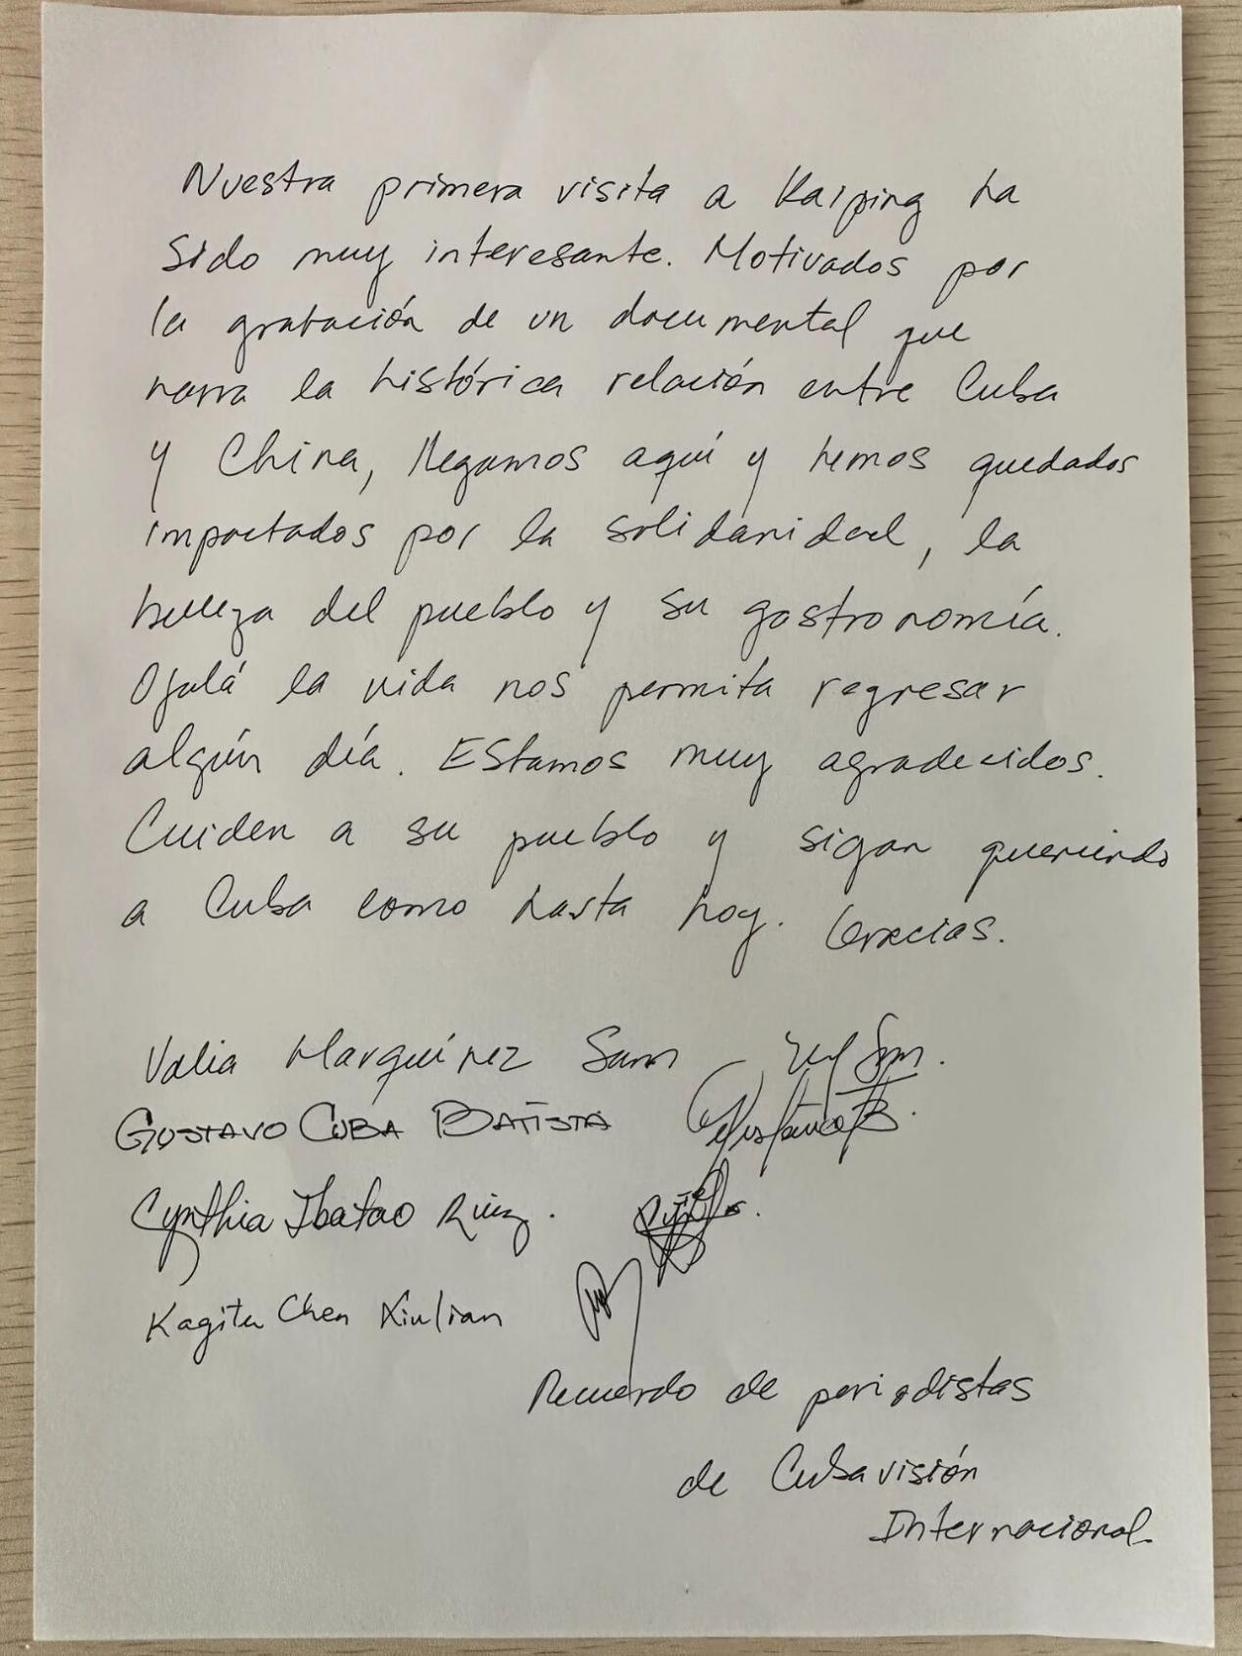 Nuestra primera visita a Kaiping ha
sido muy interesante. Motivados por
la grabación de un documental que
narra la histórica relación entre Cuba
y China, llegamos aquí y hemos quedados
impactados por la solidaridad, la
belleza del pueblo y su gastronomía.
Ojalá la vida nos permita regresar
algún día. Estamos muy agradecidos.
Cuiden a su pueblo y sigan queriendo
a Cuba como hasta hoy. Gracias.
Valia Marquínez Sam
GUSTAVO CUBA BATISTA
Cynthia Ibatao Ruiz.
Kagita Chen Xiulian
Recuerdo de periodistas
de Cubavisión
Internacional.